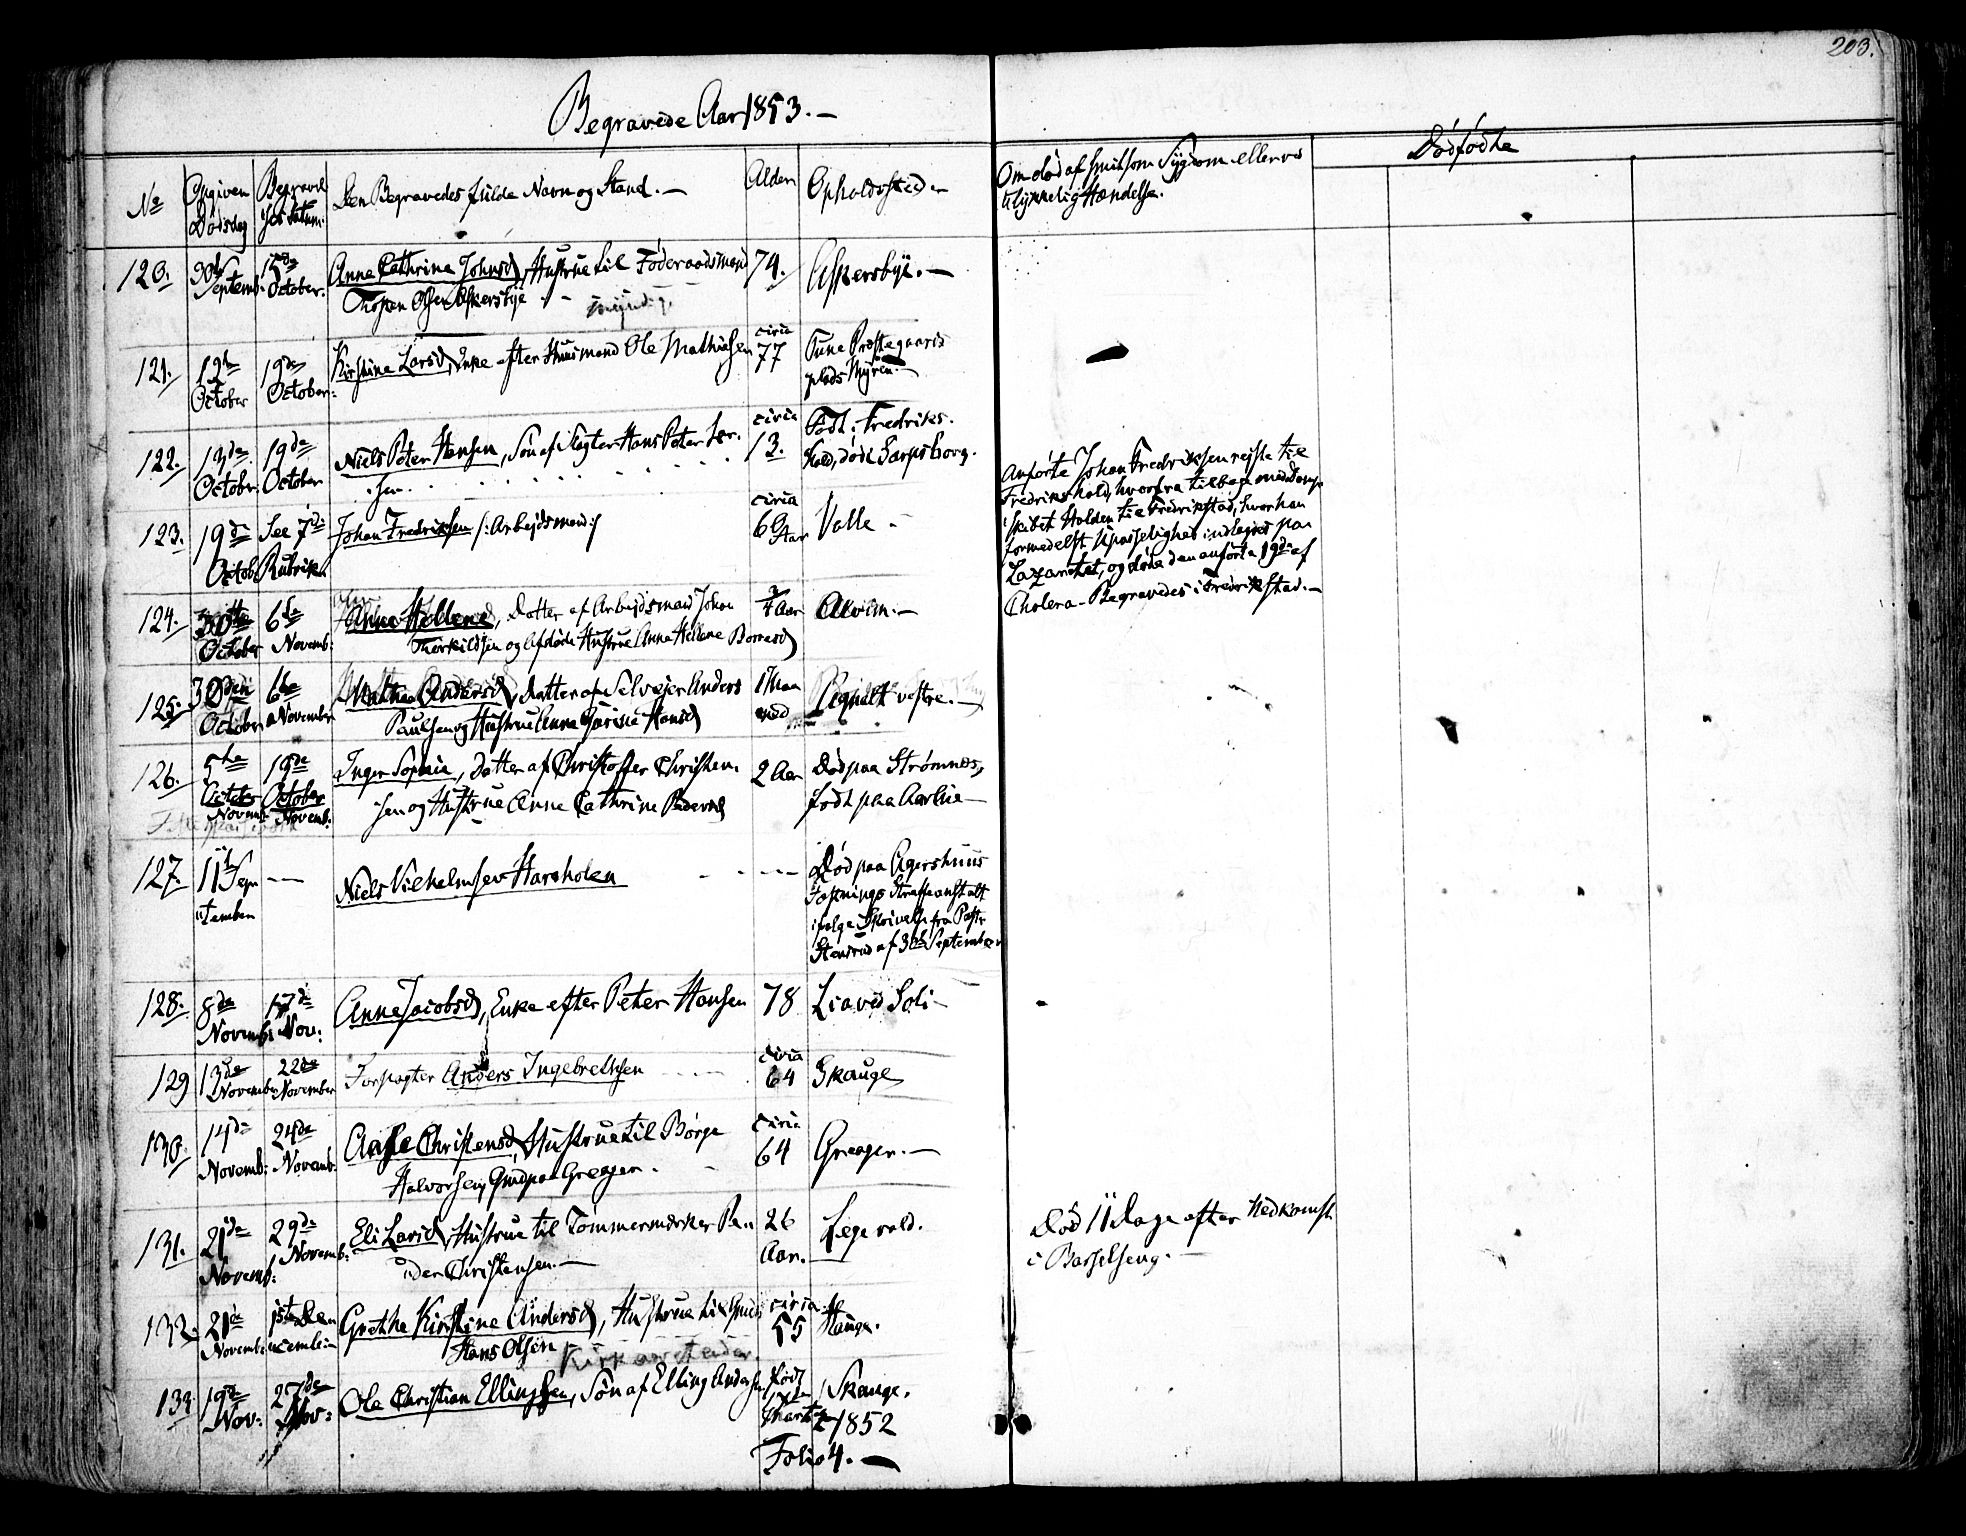 203.
Begravede Aar 1853. —
No
Opgiven
Dødsdag
Begravel
ses Datum.
Den Begravedes fulde Navn og Stand. —
Alder
Opholdssted —
Om død af smitsom Sygdom eller ved
ulykkelig Hændelse.
Dødfødte
120.
30te
Septemb:
October:
Anne Cathrine Johnsd, Hustrue til Føderaadsmand
Olsen Askersbye
74.
Askersbye. —
121.
12te
October
19de
October:
Kirstine Larsd, Enke efter Huusmand Ole Mathiesen
circa
77
Tune Præstegaards
plads Myren. —
122.
13de
October
19de
October
Niels Peter Hansen, Søn af Slagter Hans Peter Isr.
circa
13.
Født i Fredriks.
hald, død i Sarpsborg.
123.
19de
Octob:
See 7de
Rubrik.
Johan Fredriksen /: Arbejdsmand :/
circa
69 Aar
Valle —
Anførte Johan Fredriksen rejste til
Fredrikshald, hvorfra tilbage med Damp
skibet Halden til Fredrikstad, hvor han
formedelst Upasselighed indlagdes paa
Lazarethet, og døde den anførte 19de af
Cholera - Begravedes i Fredrikstad. —
124.
30te
October
6te
Novemb:
Anne Hellene, Datter af Arbejdsmand Johan
Thorkildsen og Afdøde Hustrue Anne Hellene
Aar
Alvim. —
125.
30den
October
6te
November
Mathea Andersd, Datter af Selvejer Anders
Paulsen og Hustrue Anne Hansd
1 Maa
ned
vestre. —
126.
5te
October
Novemb:
19de
October
Novemb:
Inger Sophie, Datter af Christoffer Christen.
sen og Hustrue Anne Cathrine Pedersd
2 Aar
Død paa Strømnes,
født paa —
127.
11te Sep
tember
—
Niels Vilhelmsen
- - - —
Død paa Agershuus
Fæstnings Straffeanstalt
ifølge Skrivelse fra Pastor
af September
128.
8de
Novemb:
17de
Nov:
Anne Jacobsd, Enke efter Peter Hansen
78
Lia ved Soli —
129
13de
November
22de
November
Forpagter Anders Ingebretsen
circa
64
Skauge
130.
14de
Novemb:
24de
Novemb.
Christensd, Hustrue til Børge
Halvorsen, Gmd paa Greager.
circa
64
Greager. —
131.
21de
Novemb:
29de
Novemb:
Eli Larsd, Hustrue til Tømmermærker Pe
der Christensen. —
26
Aar.
Død 11 Dage efter Nedkomst
i Barselseng. —
132.
21de
Novemb:
1ste De
cemb:
Grethe Kirstine Andersd, Hustrue til Gmd
Hans Olsen
circa
55
Hauge.
133
19de
Nov:
27de
Nov:
Ole Christian Ellingsen, Søn af Elling Andersen
Født
Skauge.
1852
Folio 4. —